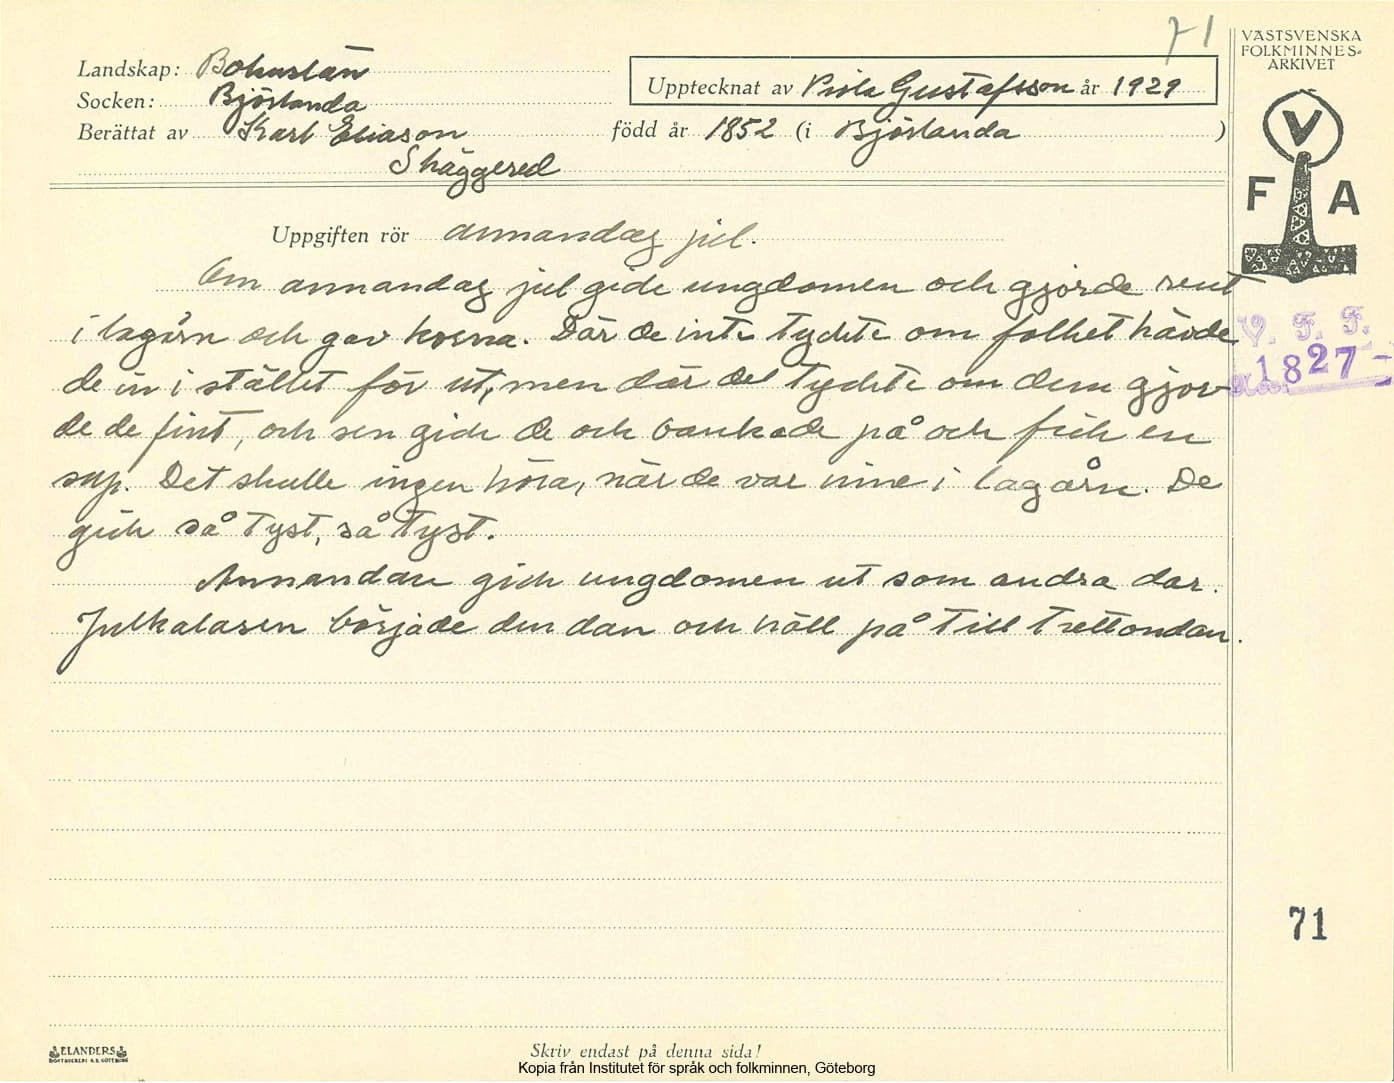 71
VÄSTSVENSKA
FOLKMINNES-
ARKIVET
Landskap: Bohuslän
Upptecknat av Viola Gustafsson år 1929
Socken: Björlanda
Berättat av Karl Eliason född år 1852 (i Björlanda )
Skäggered
V
F A
Uppgiften rör annandag jul.
Om annandag jul gick ungdomen och gjorde rent
i lagårn och gav korna. Där de inte tyckte om folket hävde
de in i stället för ut, men där det tyckte om dem gjor-
de de fint, och sen gick de och bankade på och fick en
sup. Det skulle ingen höra, när de var inne i lagårn. De
gick så tyst, så tyst.
Annandan gick ungdomen ut som andra dar.
Julkalasen började den dan och höll på till trettondan.
V. F. F.
1827
71
ELANDERS
BOKTRYCKERI A.B. GÖTEBORG
Skriv endast på denna sida!
Kopia från Institutet för språk och folkminnen, Göteborg